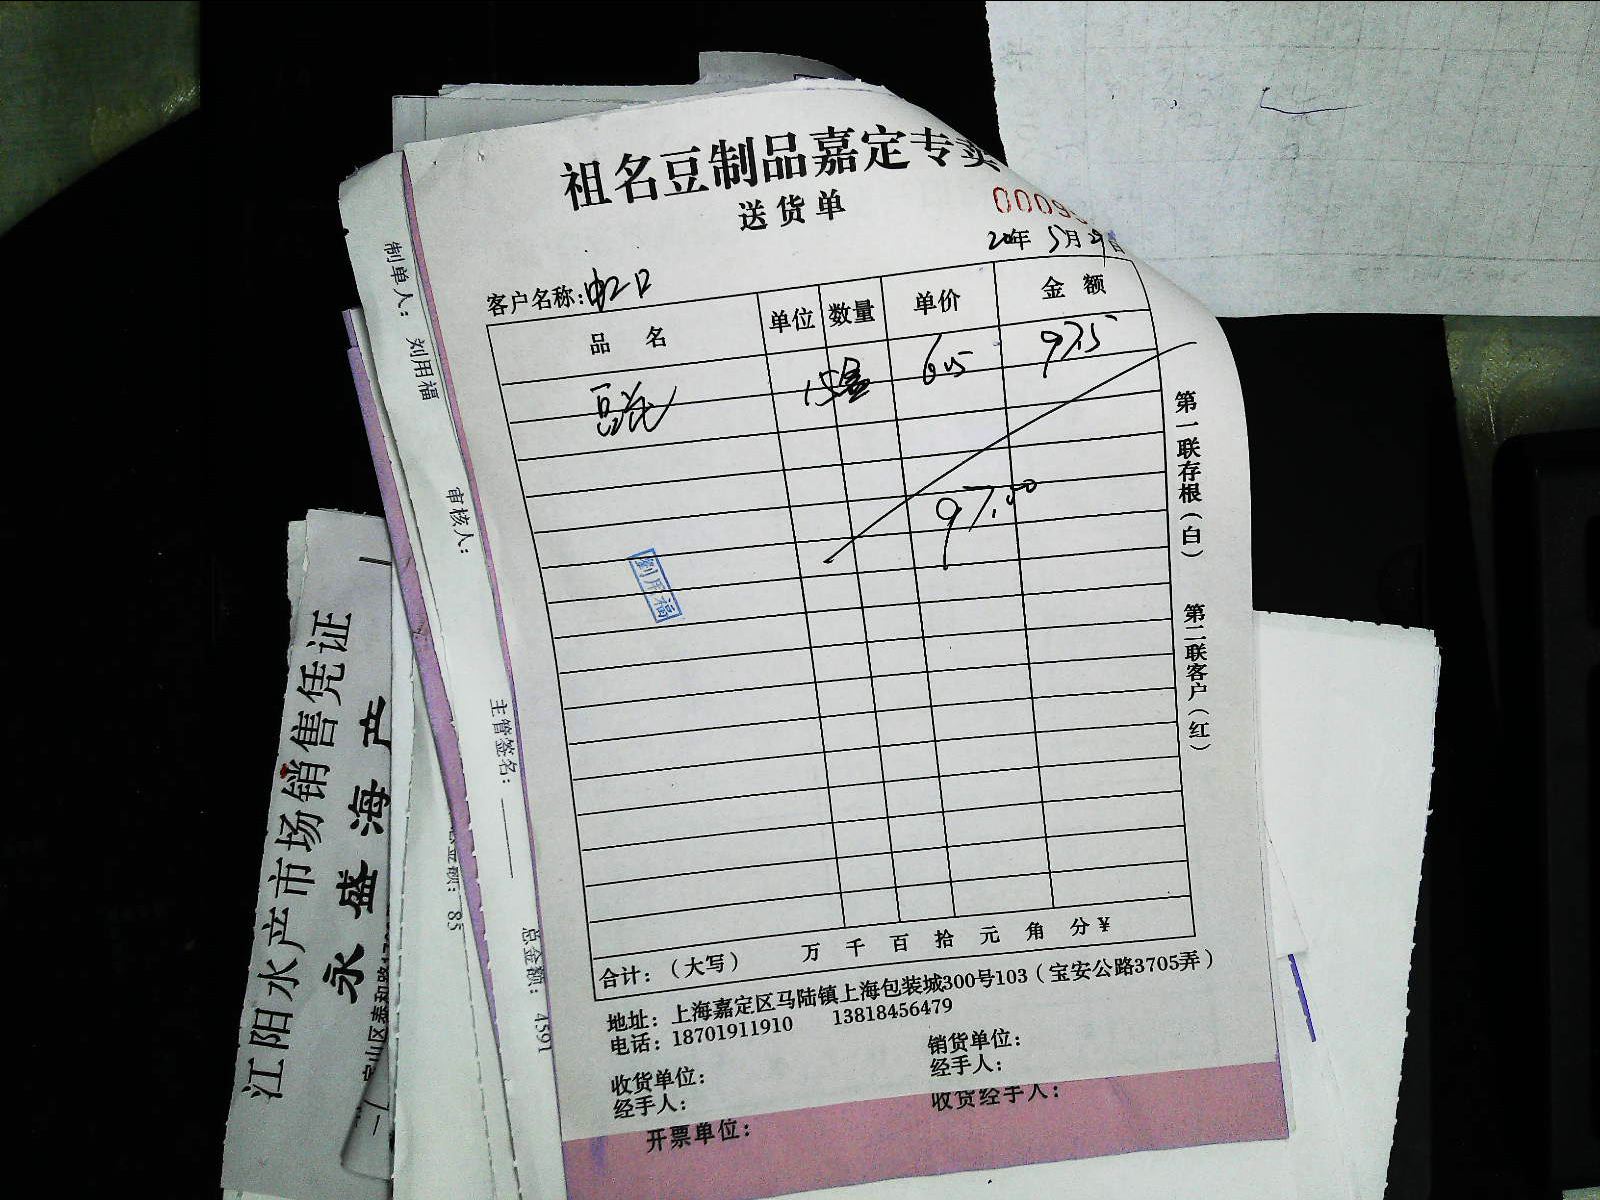 祖名豆制品嘉定专卖
送货单
0009
20年 5月29日
客户名称:虹口
品名 单位 数量 单价 金额
豆花 15盒 6.5 97.5
97.50
劉用福
合计:(大写) 万 千 百 拾 元 角 分 ¥
地址:上海嘉定区马陆镇上海包装城300号103(宝安公路3705弄)
电话:18701911910 13818456479
收货单位: 销货单位:
经手人: 经手人:
开票单位: 收货经手人:
第一联存根(白) 第二联客户(红)
制单人: 刘用福 审核人: 主管签名: 总金额: 4591
总金额: 85
江阳水产市场销售凭证
永盛海产